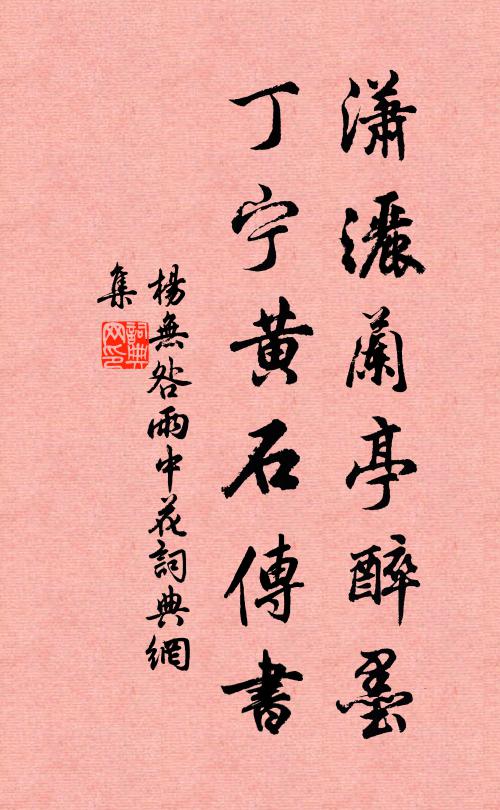 瀟灑蘭亭醉墨
丁宁黃石傳書
楊無咎雨中花詞典網
集
詞典網印